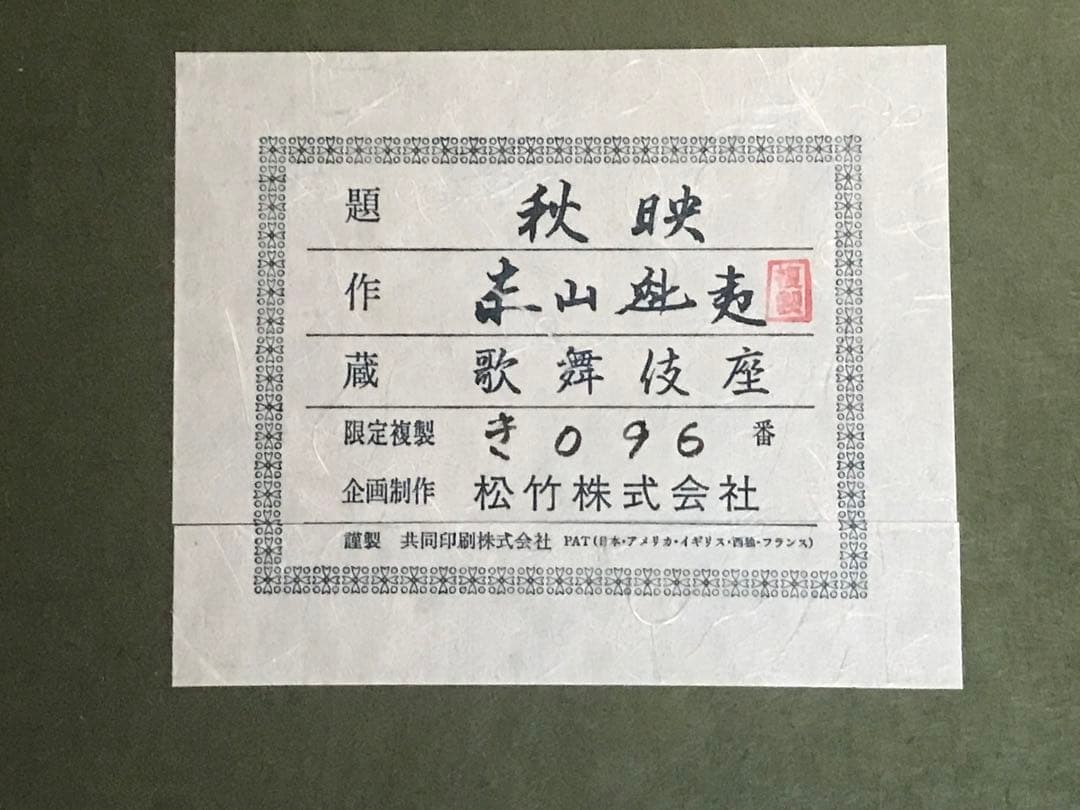 題 秋映
作 東山魁夷 複製
蔵 歌舞伎座
限定複製 き096 番
企画制作 松竹株式会社
謹製 共同印刷株式会社 PAT(日本・アメリカ・イギリス・西独・フランス)